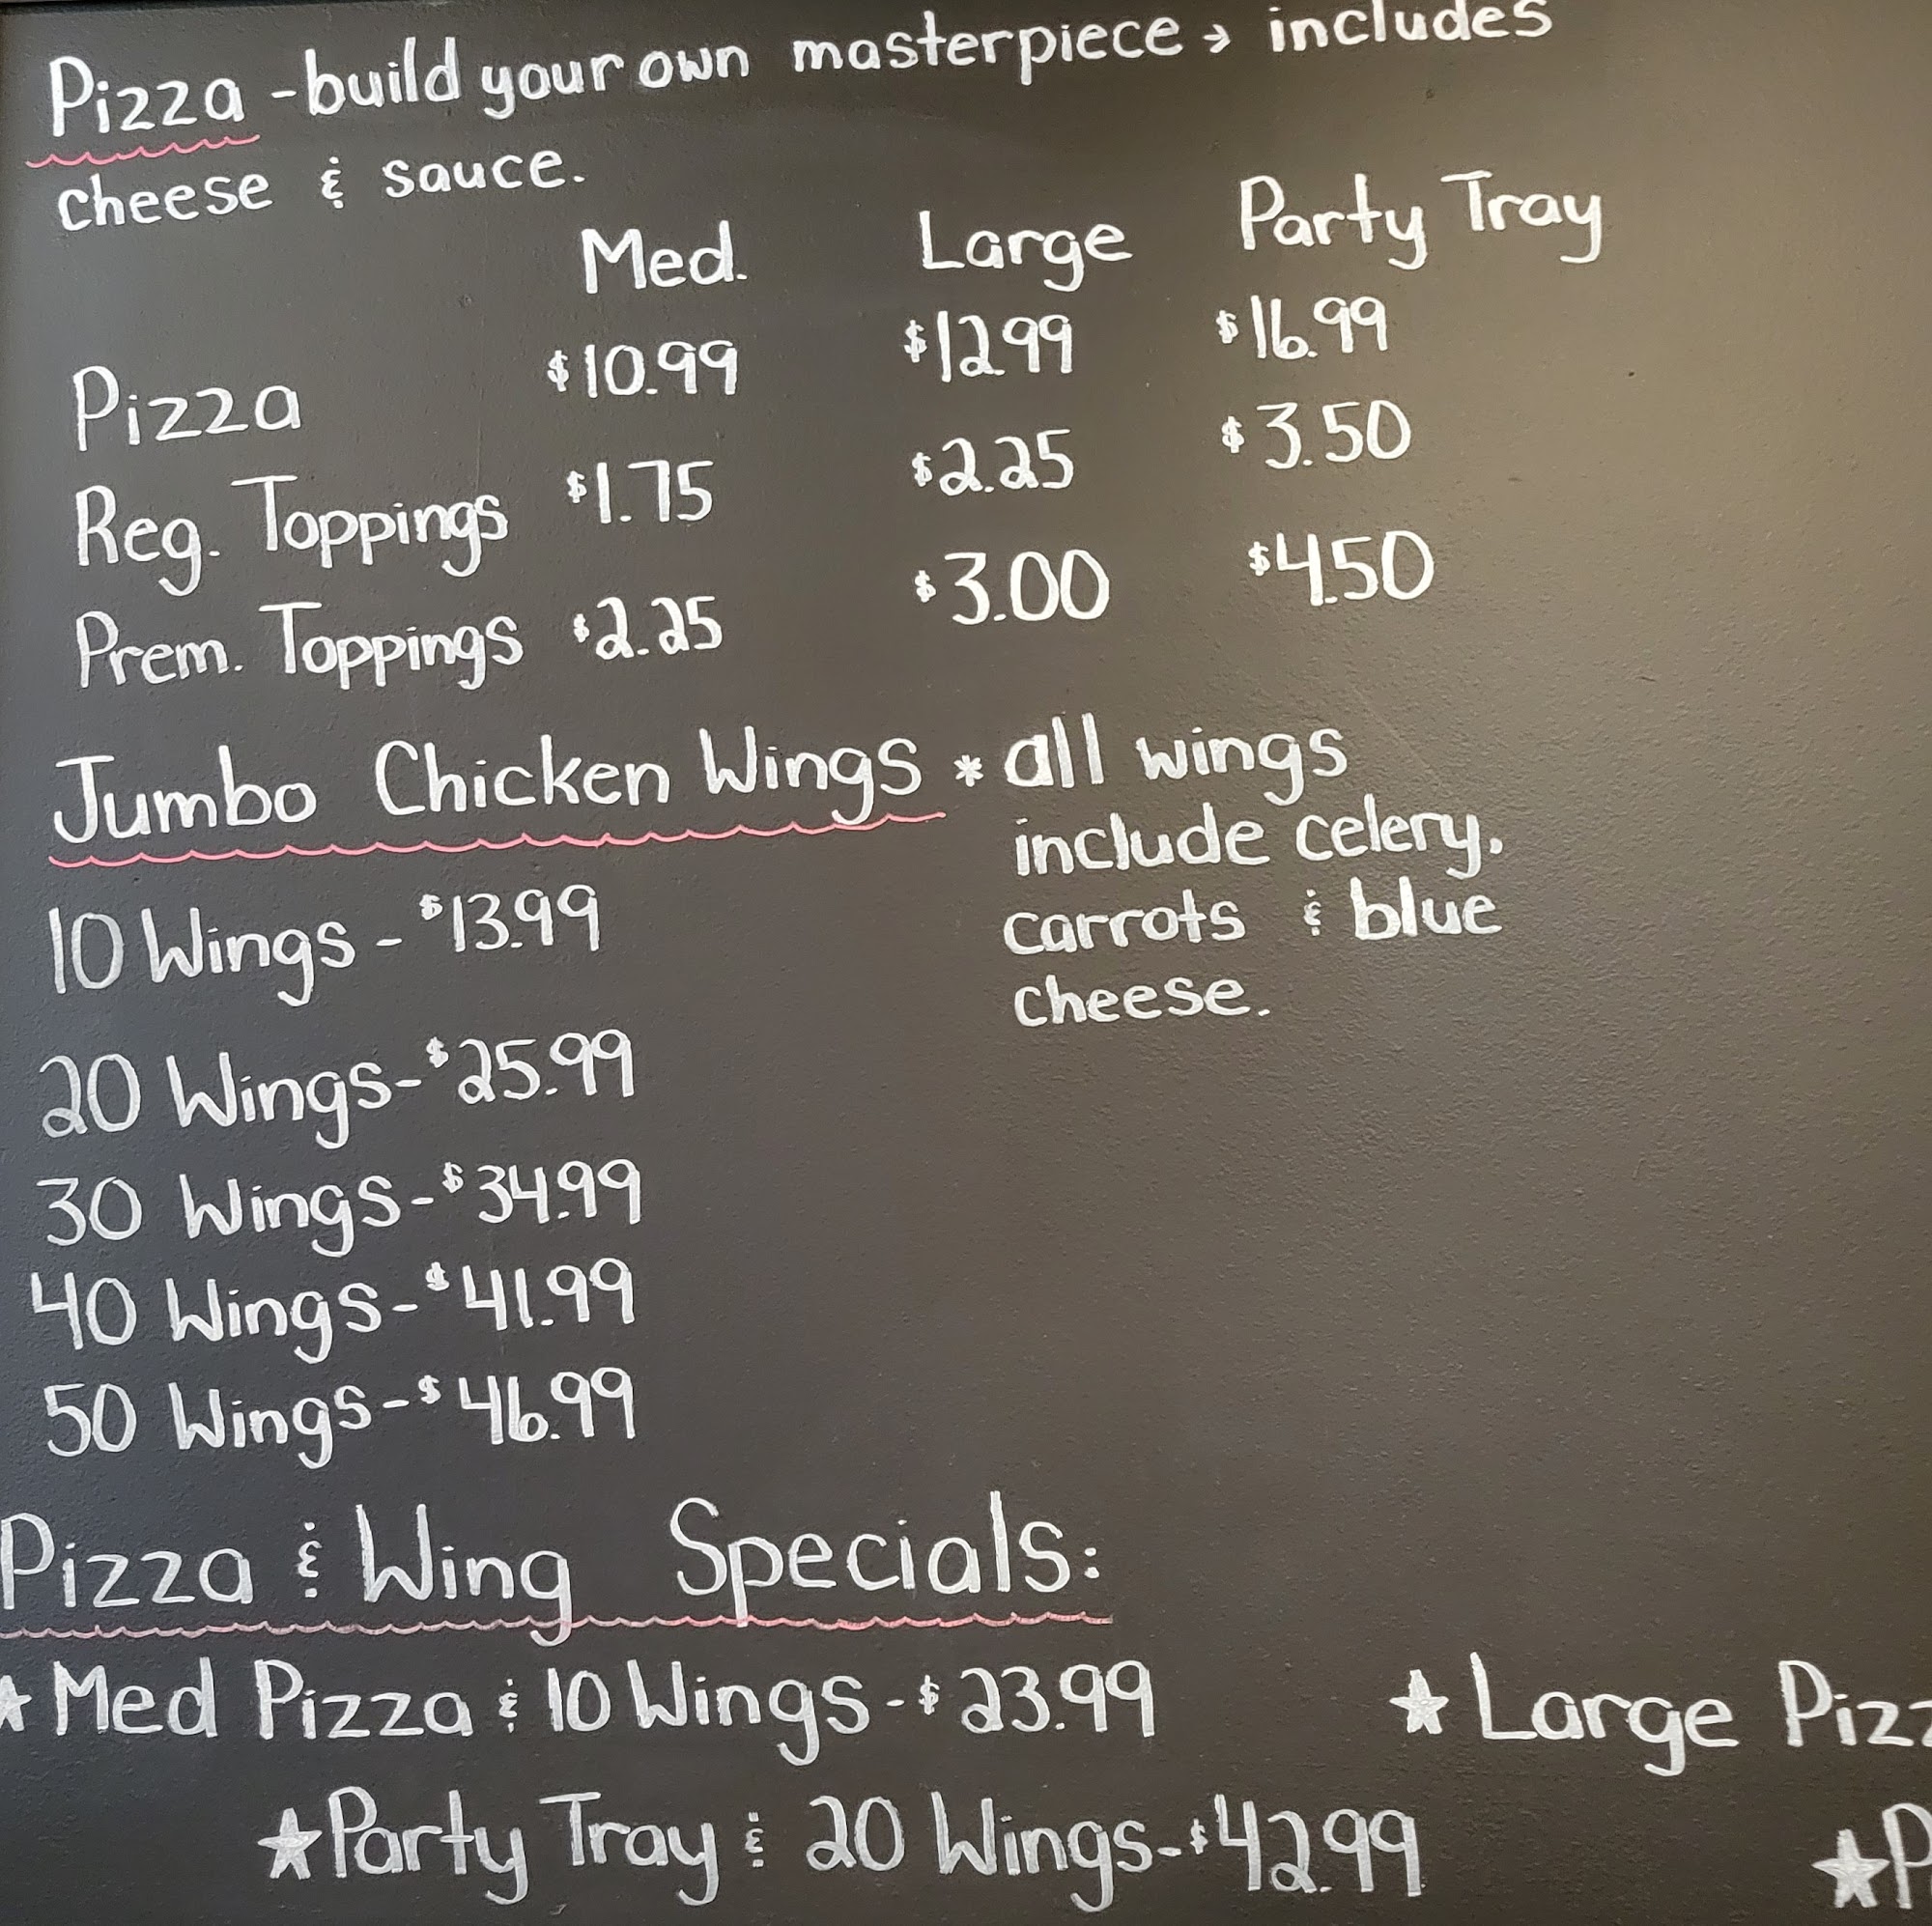 Pizza - build your own masterpiece → includes
cheese & sauce.
Med. Large Party Tray
Pizza $10.99 $12.99 $16.99
Reg. Toppings $1.75 $2.25 $3.50
Prem. Toppings $2.25 $3.00 $4.50
Jumbo Chicken Wings * all wings
include celery,
carrots & blue
cheese.
10 Wings - $13.99
20 Wings - $25.99
30 Wings - $34.99
40 Wings - $41.99
50 Wings - $46.99
Pizza & Wing Specials:
★ Med Pizza & 10 Wings - $23.99 ★ Large Pizz
★ Party Tray & 20 Wings - $42.99 ★ P